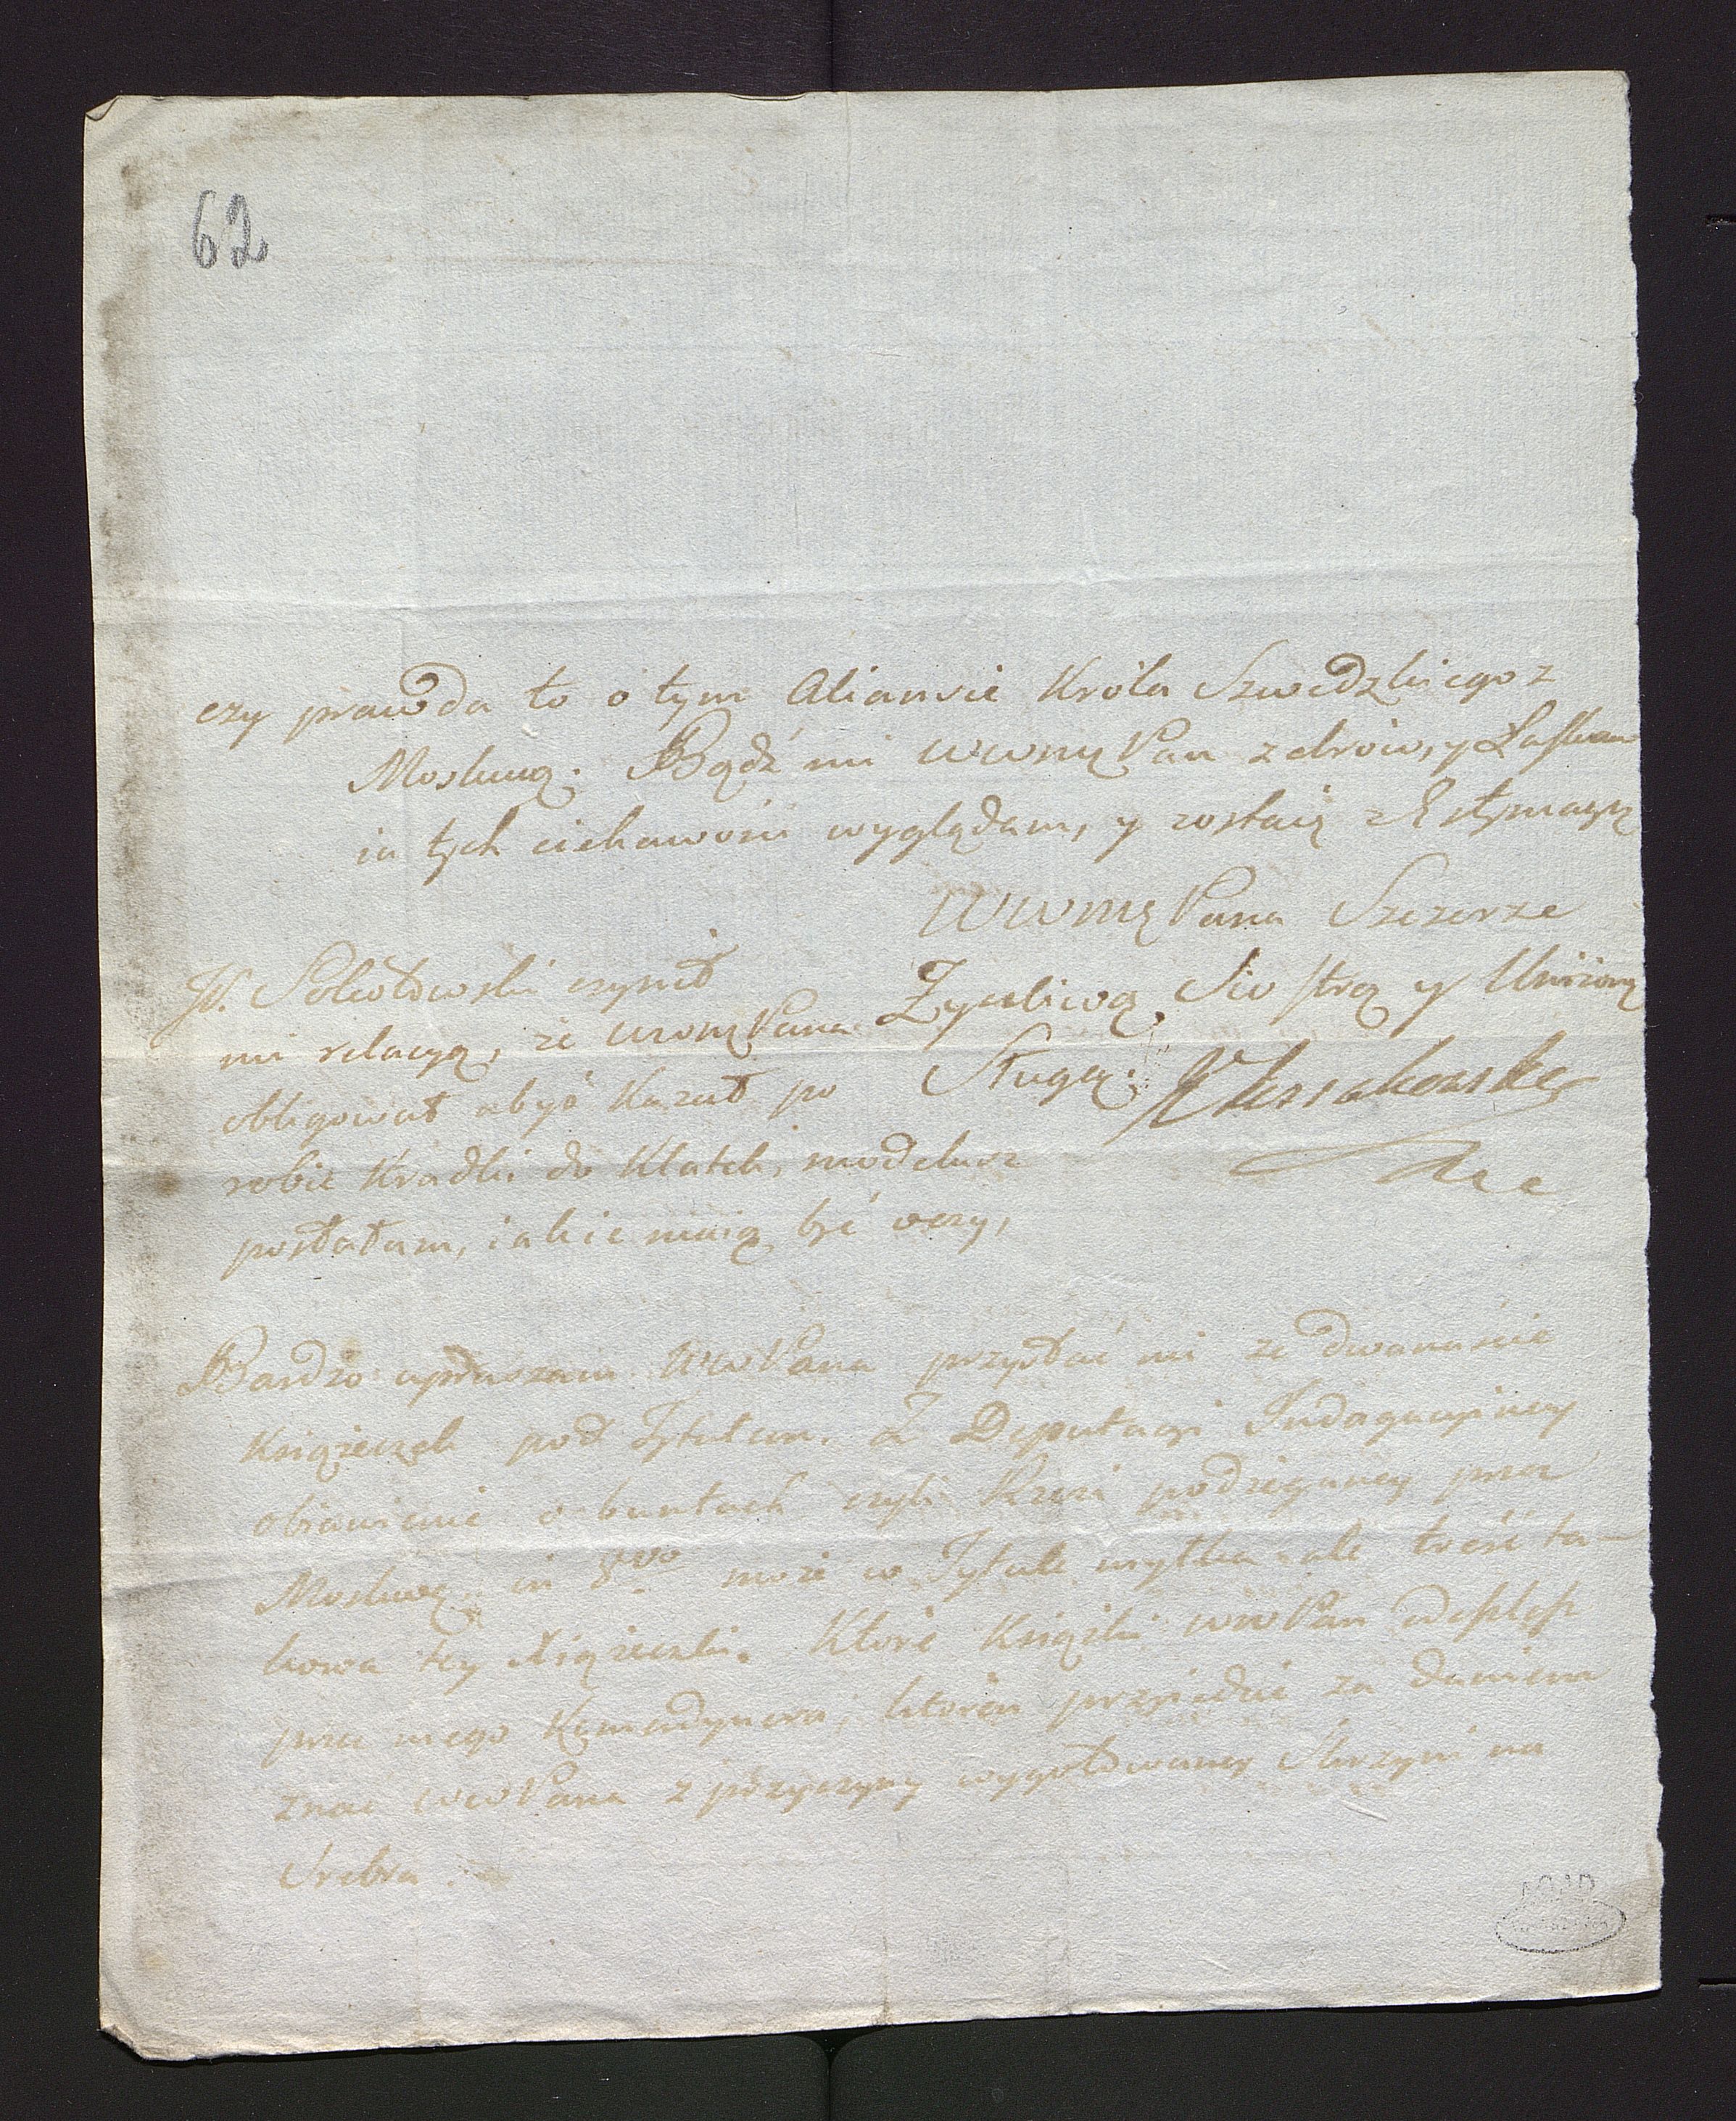 62
czy prawda to o tym Aliansie Króla Szwedzkiego z
Moskwą. Bądź mi WWMę Pan zdrów, y Łaskaw
ia tych ciekawosci wyglądam, y zostaię z Estymacyą
WWMę Pana Szczerze
Zyczliwą Siostrą y Unizoną
Sługą.
Jp. Sokołowski czynił
mi relacyą, że WWMę Pana
obligował abyś kazał po
robic Kradki do Klatek, modelusz
posłałam, iakie maią być oczy,
Bardzo upraszam WWPana przysłać mi ze dwanascie
Książeczek pod Tytułem. Z Deputacyi Indagacyiney
obiawienie o buntach czyli Rzezi podżeganey przez
Moskwę in 8vo może w Tytule myłka ale treść ta-
kowa tey Xiążeczki. Ktore Książki WWPan
przez mego Kamerdynera, ktoren przyiedzie za daniem
znac WWPana z przyczyny wygotowaney Skrzyni na
Srebra.